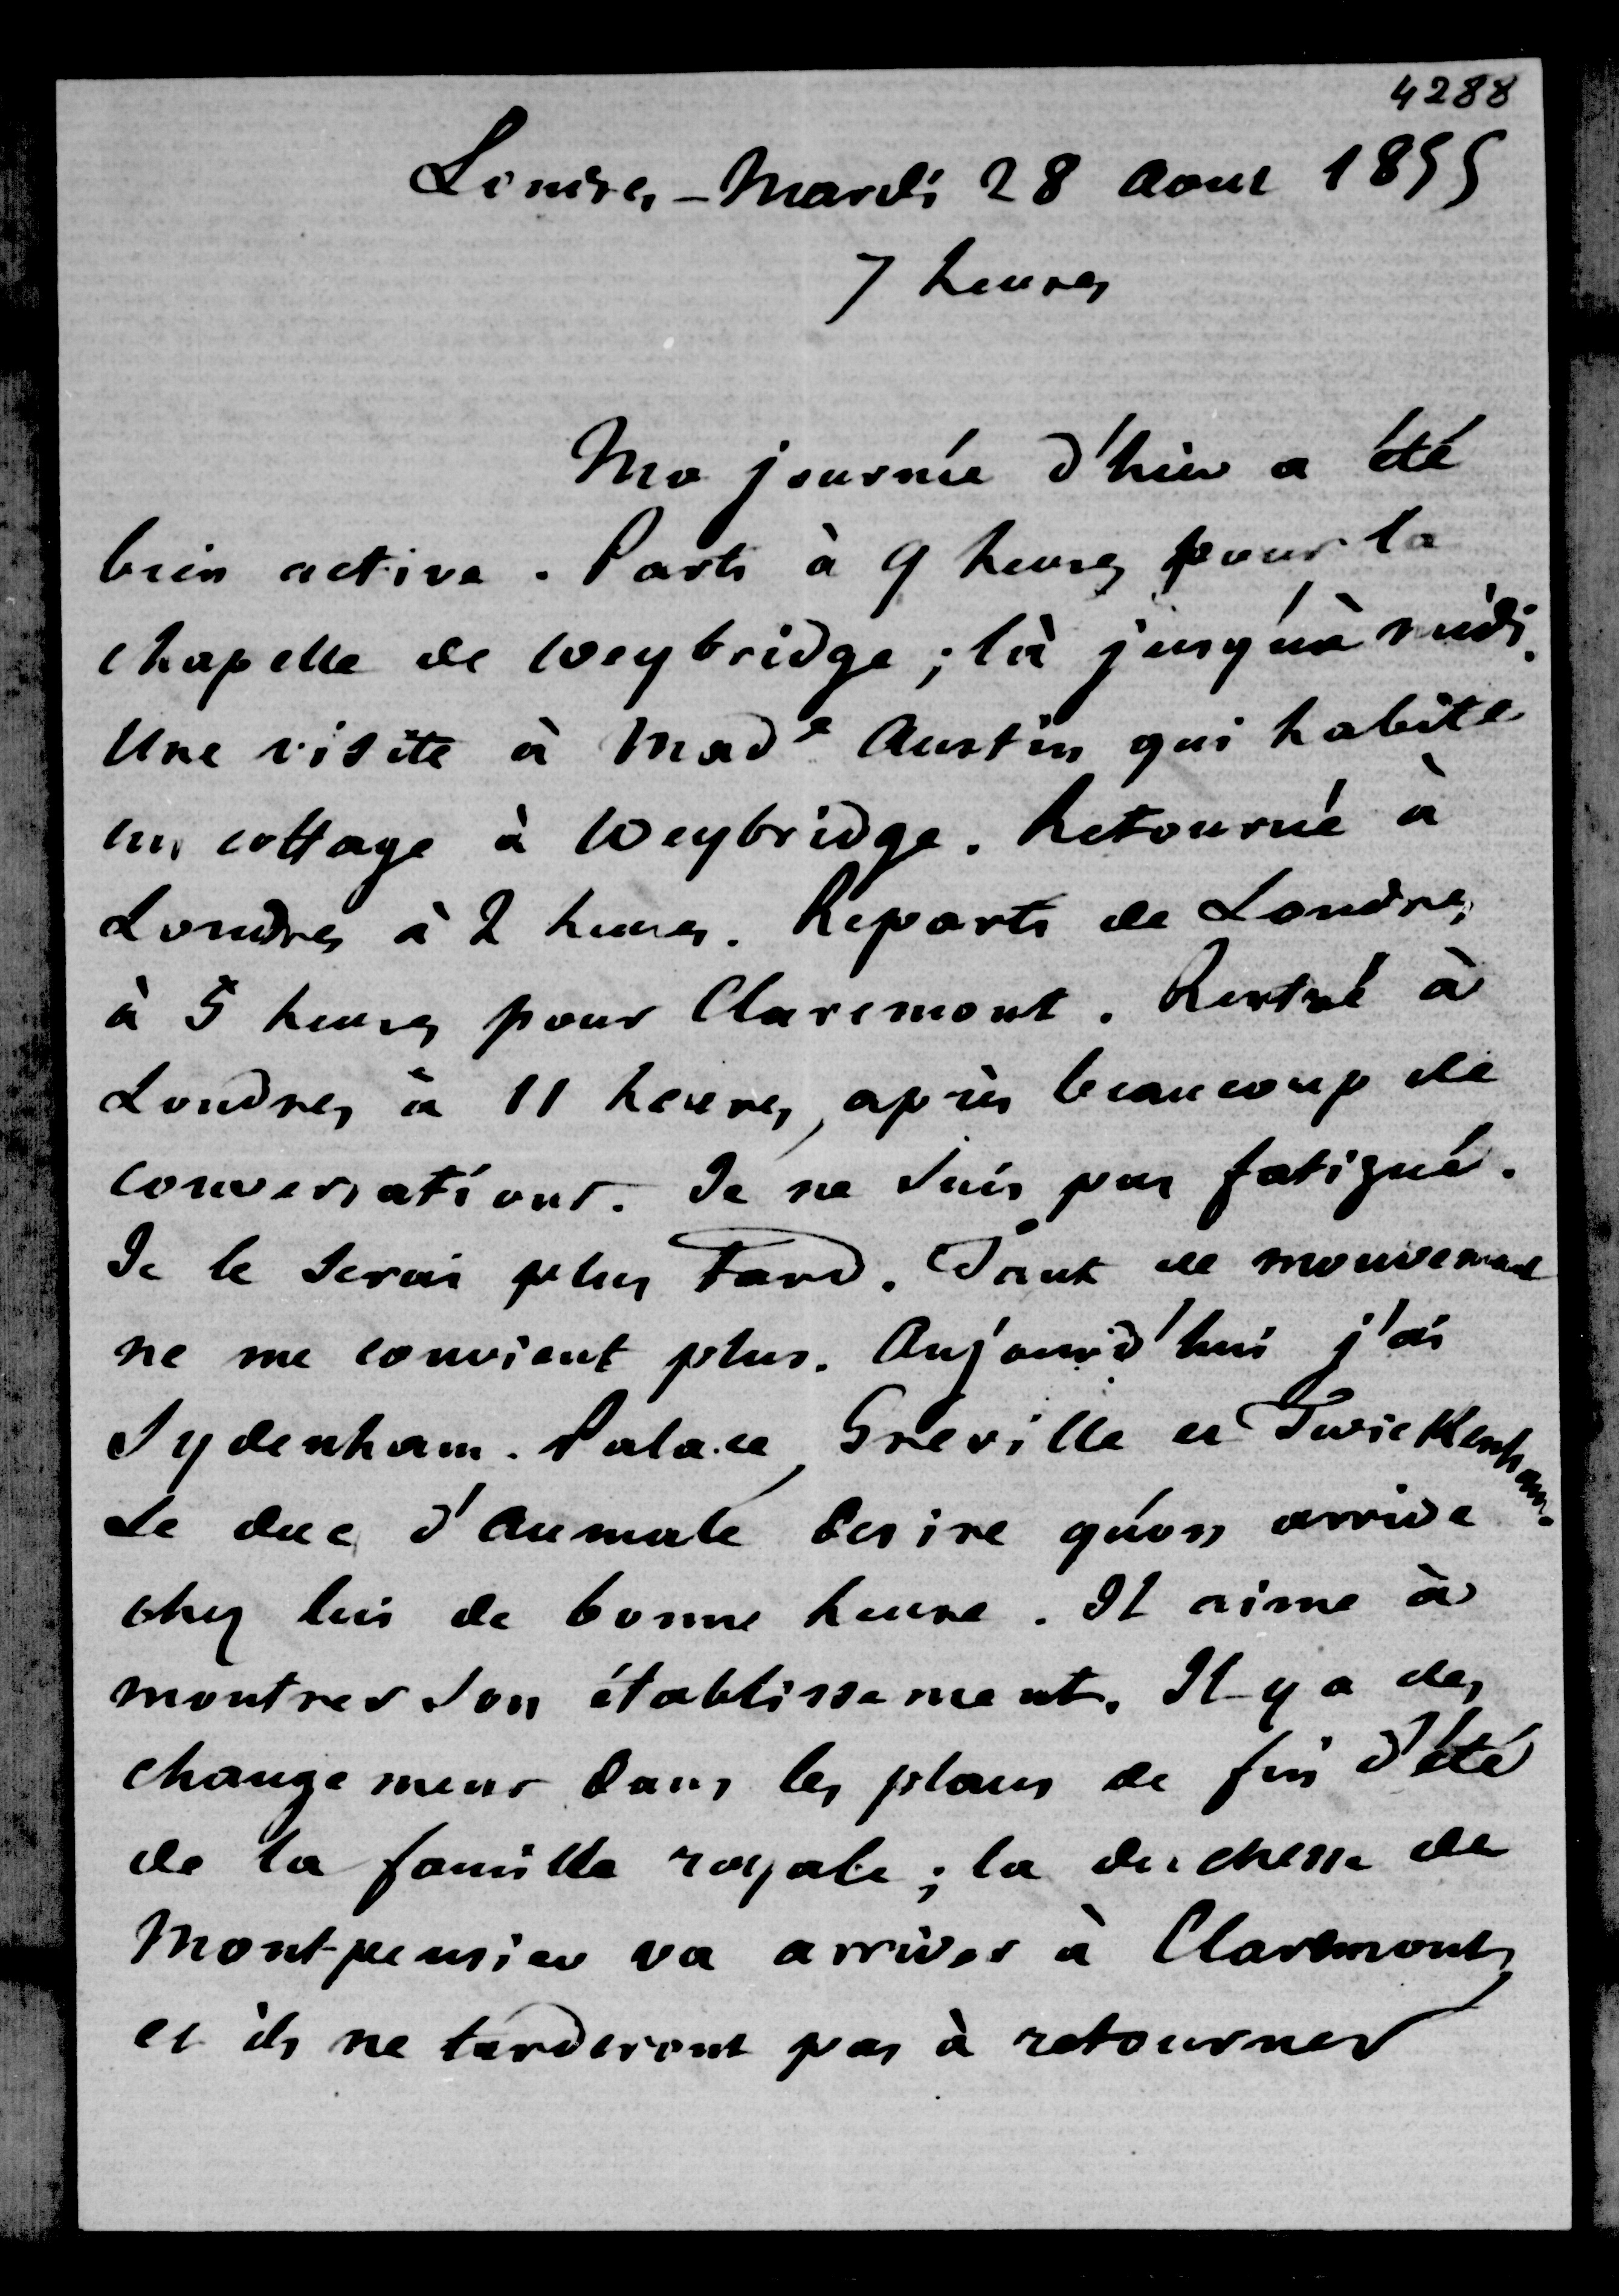 4288
Londres - Mardi 28 Aout 1855
7 heures
Ma journée d'hier a été
bien active. Parti à 9 heures pour la
chapelle de Weybridge ; là jusqu'à midi.
Une visite à Made Austin qui habite
un cottage à Weybridge. Retourné à
Londres à 2 heures. Reparti de Londres
à 5 heures pour Claremont. Rentré à
Londres à 11 heures, après beaucoup de
conversations. Je ne suis pas fatigué.
Je le serai plus tard. Tant de mouvement
ne me convient plus. Aujourd'hui j'ai
Sydenham-Palace, Greville et Twickenham.
Le duc d'Aumale desire qu'on arrive
chez lui de bonne heure. Il aime à
montrer son établissement. Il y a des
changemens dans les plans de fin d'été
de la famille royale ; la duchesse de
Montpensier va arriver à Claremont,
et ils ne tarderont pas à retourner